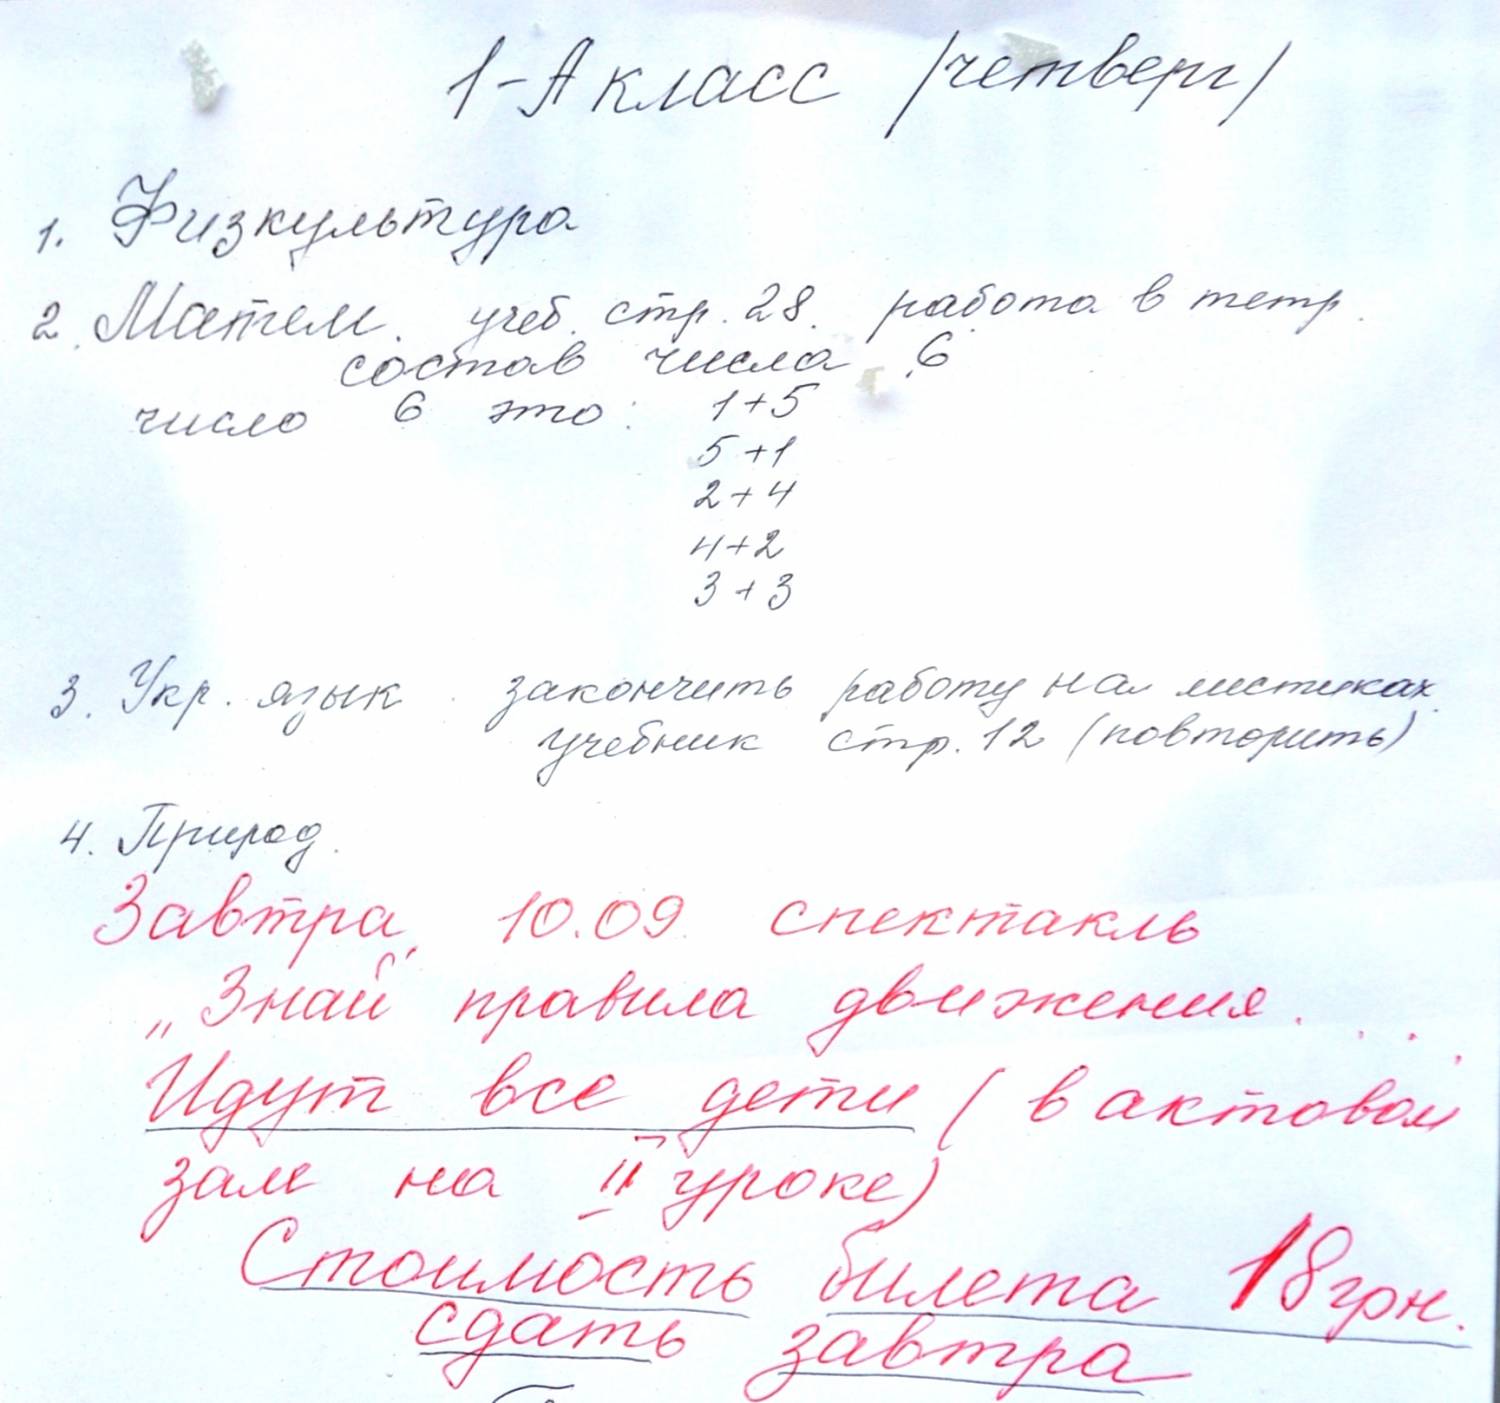 1-А класс /четверг/
1. Физкультура
2. Матем. учеб. стр. 28. работа в тетр.
состав числа 6
число 6 это: 1+5
5+1
2+4
4+2
3+3
3. Укр. язык. закончить работу на листиках.
учебник стр. 12 (повторить)
4. Природ.
Завтра, 10.09. спектакль
„Знай правила движения...."
Идут все дети (в актовом
зале на II уроке)
Стоимость билета 18 грн.
сдать завтра